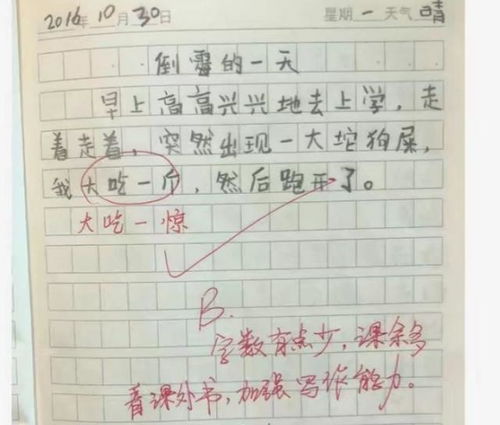 2016年10月30日 星期一 天气晴
倒霉的一天
早上高高兴兴地去上学，走
着走着，突然出现一大坨狗屎，
我大吃一斤，然后跑开了。
大吃一惊
B.
字数有点少，课余多
看课外书，加强写作能力。